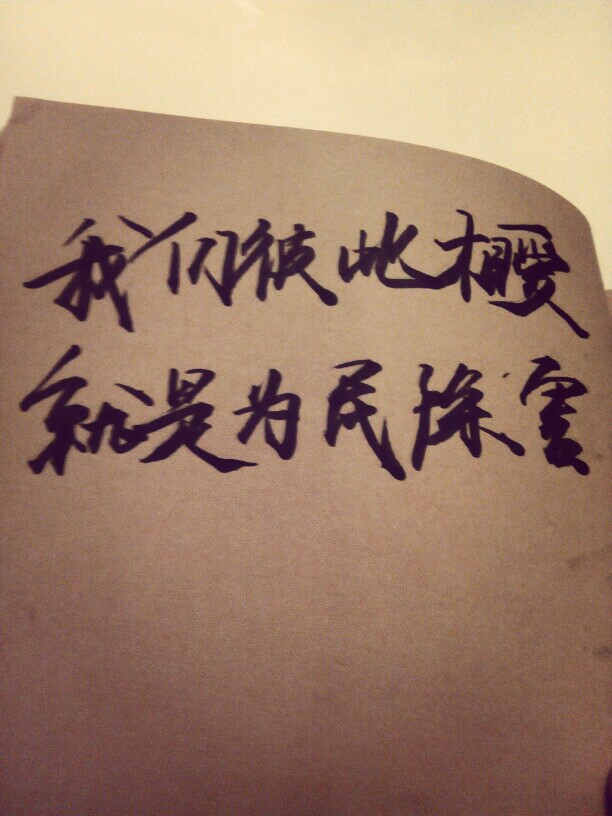 我们彼此相愛
就是为民除害